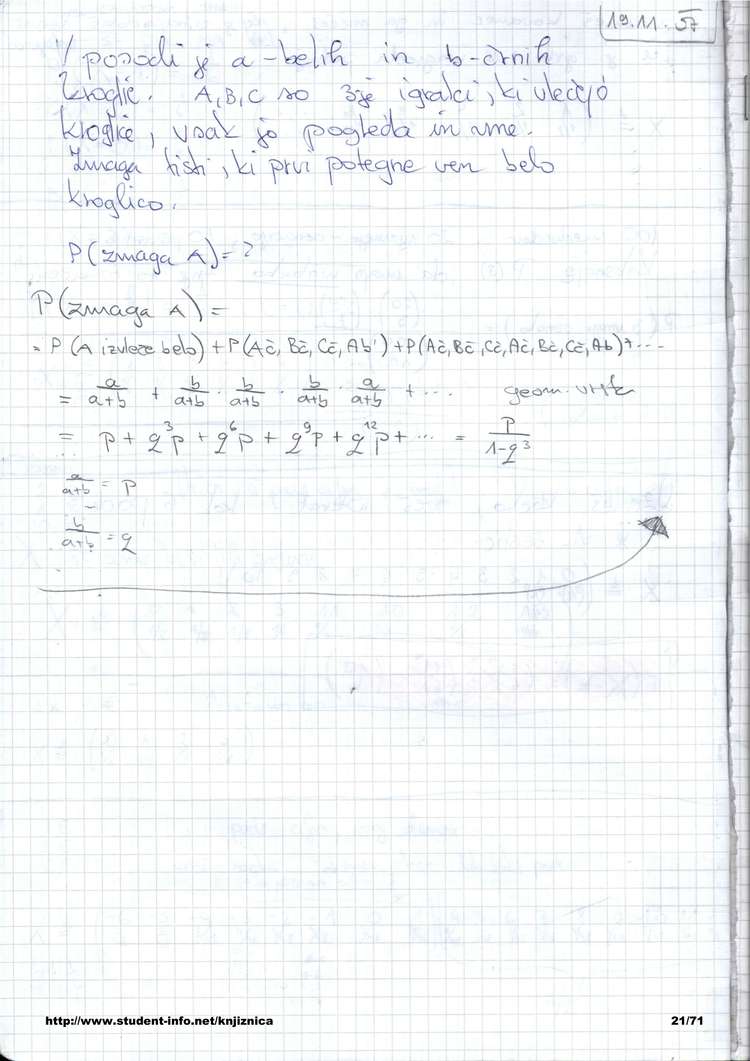 19.11. 57
V posodi je a-belih in b-črnih
kroglic. A, B, C so 3je igralci, ki vlečejo
kroglice, vsak jo pogleda in vrne.
Zmaga tisti, ki prvi potegne ven belo
kroglico.
P(zmaga A) = ?
P(zmaga A) =
= P (A izvleče belo) + P(Ač, Bč, Cč, Ab) + P(Ač, Bč, Cč, Ač, Bč, Cč, Ab) + ...
= a/a+b + b/a+b · b/a+b · b/a+b · a/a+b + ... geom. vrsta
= p + q³p + q⁶p + q⁹p + q¹²p + ... = p/1-q³
a/a+b = p
b/a+b = q
http://www.student-info.net/knjiznica 21/71